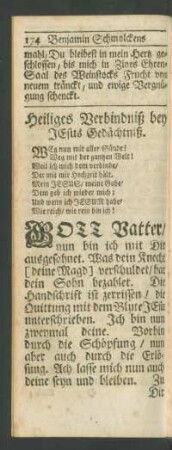 174 Benjamin Schmolckens
mahl/ Du bleibest in mein Hertz ge-
schlossen/ bis mich in Zions Ehren-
Saal des Weinstocks Frucht von
neuem tränckt/ und ewige Vergnü-
gung schenckt.
Heiliges Verbindniß bey
JEsus Gedächtniß.
WEg nun mit aller Sünde!
Weg mit der gantzen Welt!
Weil ich mich dem verbinde/
Der mit mir Hochzeit hält.
Mein JESUS/ meine Gabe/
Dem geb ich wieder mich:
Und wenn ich JESUM habe/
Wie reich/ wie rein bin ich!
GOTT Vatter/
nun bin ich mit Dir
ausgesöhnet. Was dein Knecht
[deine Magd] verschuldet/ hat
dein Sohn bezahlet. Die
Handschrift ist zerrissen/ die
Quittung mit dem Blute JEsu
unterschrieben. Ich bin nun
zweymal deine. Vorhin
durch die Schöpfung/ nun
aber auch durch die Erlö-
sung. Ach lasse mich nun auch
deine seyn und bleiben. Zu
Dir